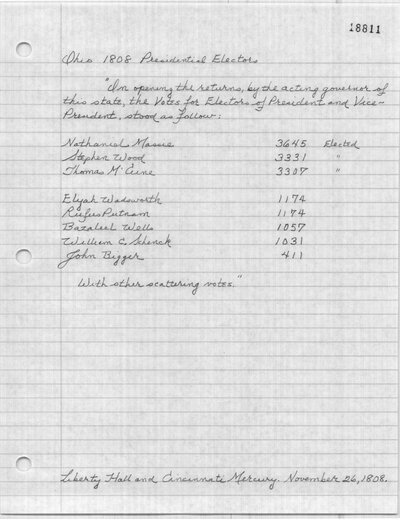 18811
Ohio 1808 Presidential Electors
"On opening the returns, by the acting governor of
this state, the Votes for Electors of President and Vice-
President, stood as follow:
Nathaniel Massie 3645 Elected
Stephen Wood 3331 "
Thomas McCune 3307 "
Elijah Wadsworth 1174
Rufus Putnam 1174
Bazaleel Wells 1057
William C. Schenck 1031
John Bigger 411
With other scattering votes."
Liberty Hall and Cincinnati Mercury. November 26, 1808.